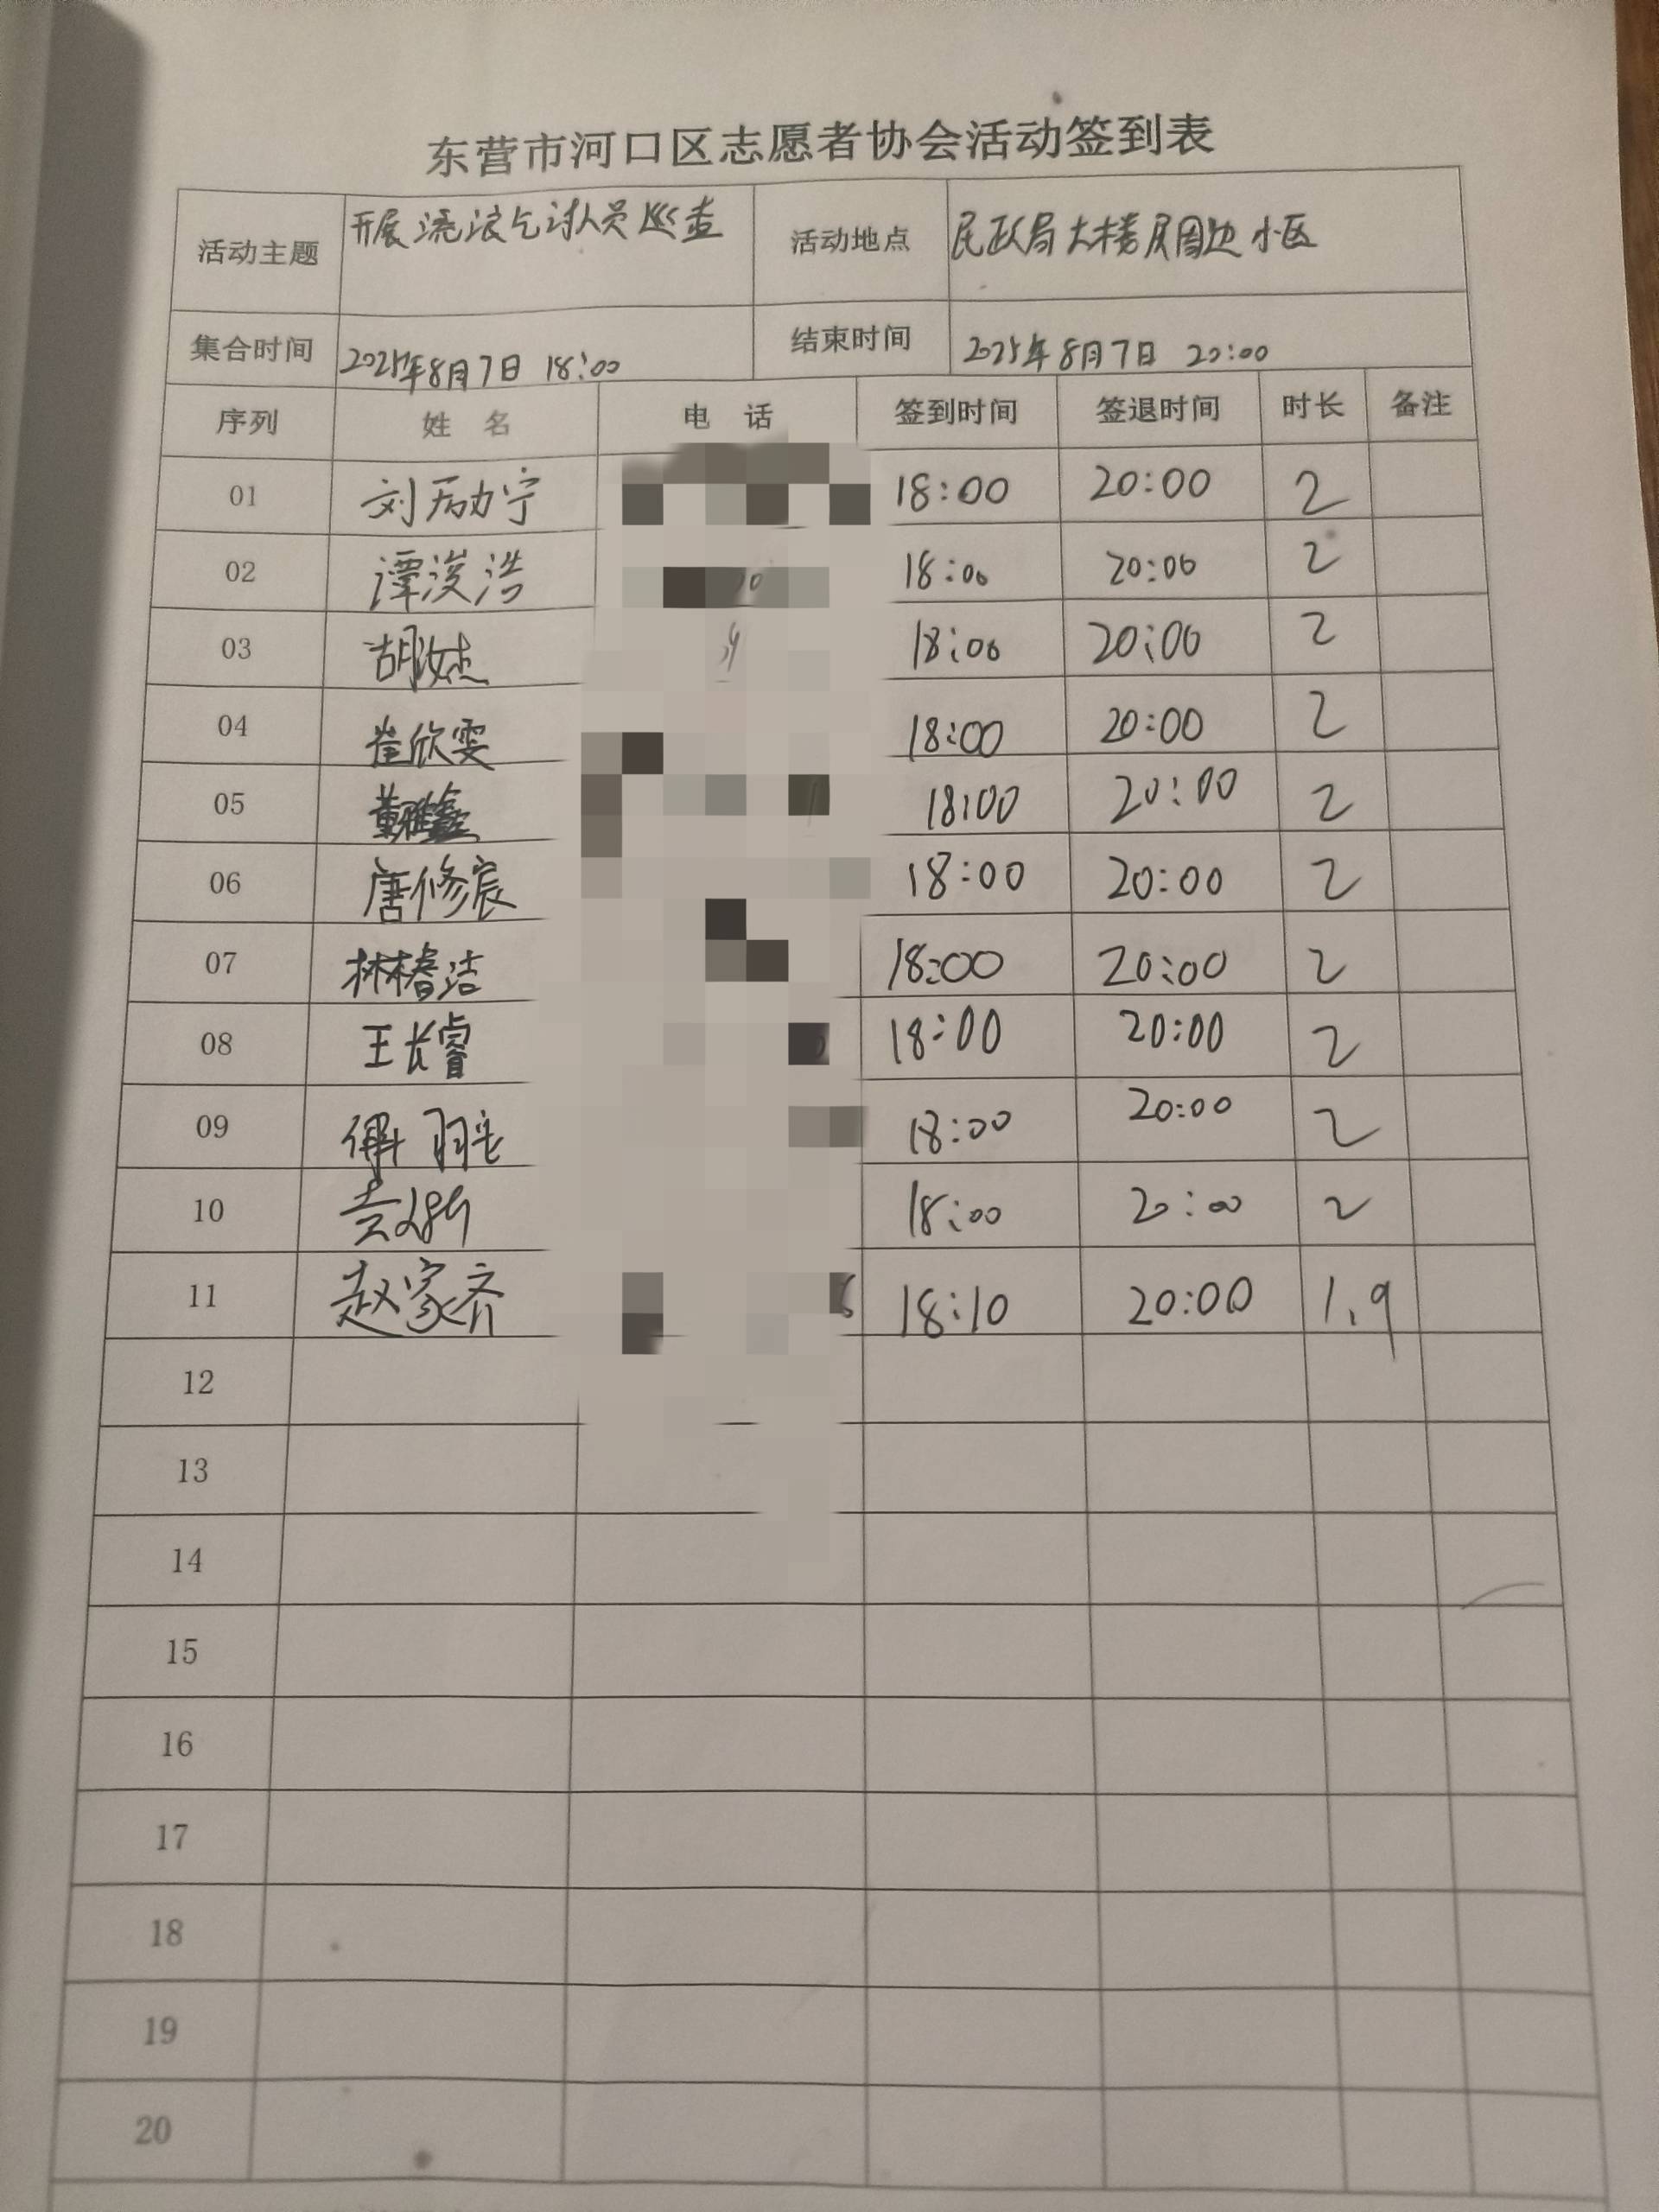 东营市河口区志愿者协会活动签到表
活动主题 开展流浪乞讨人员巡查 活动地点 民政局大楼及周边小区
集合时间 2025年8月7日 18:00 结束时间 2025年8月7日 20:00
序列 姓 名 电 话 签到时间 签退时间 时长 备注
01 刘励宁 18:00 20:00 2
02 谭浚浩 18:00 20:00 2
03 胡 18:00 20:00 2
04 崔欣雯 18:00 20:00 2
05 18:00 20:00 2
06 唐修宸 18:00 20:00 2
07 林椿洁 18:00 20:00 2
08 王长睿 18:00 20:00 2
09 18:00 20:00 2
10 18:00 20:00 2
11 赵家齐 18:10 20:00 1.9
12
13
14
15
16
17
18
19
20